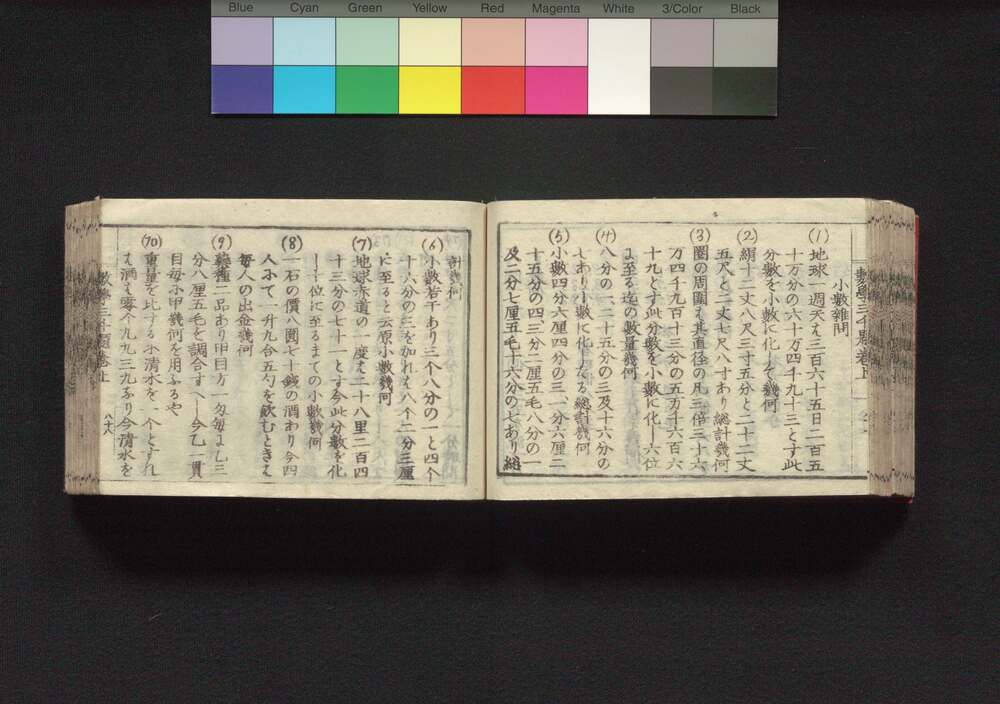 Blue Cyan Green Yellow Red Magenta White 3/Color Black
小數雜問
(1) 地球一週天は三百六十五日二百五
十万分の六十万四千九十三とす此
分數を小數に化して幾何
(2) 絹十二丈八尺三寸五分と二十二丈
五尺と二丈七尺八寸あり總計幾何
(3) 圏の周圍は其直径の凡三倍三十六
万四千九百十三分の五万千六百六
十九とす此分數を小數に化し十六位
に至る迄の数量幾何
(4) 八分の一、二十五分の三及十六分の
七あり小數に化したる總計幾何
(5) 小數四分六厘四分の三、一分六厘二
十五分の四、三分二厘五毛八分の一
及二分七厘五毛十六分の七あり總
計幾何
(6) 小數若干あり三个八分の一と四个
十六分の三を加れは八个二分三厘
に至ると云原小數幾何
(7) 地球赤道の一度は二十八里二百四
十三分の七十一とす今此分數を化
し十位に至るまての小數幾何
(8) 一石の價八圓七十錢の酒わり今四
人にて一升九合五勺を飲むときは
每人の出金幾何
(9) 藥種二品あり甲目方一匁每に乙三
分八厘五毛を調合すへし今乙一貫
目每に甲幾何を用ふるや
(10) 重量を比するに清水を一个とすれ
は酒は零个九九三九なり今清水を
數學三千題卷上
八十八